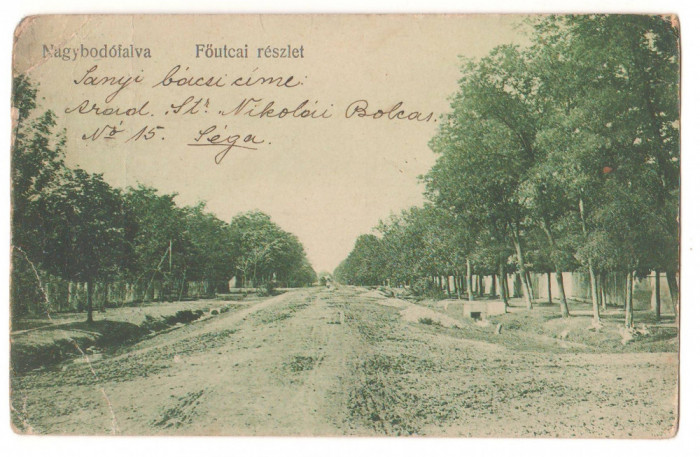 Nagybodófalva Főutcai részlet
Sanyi bácsi címe:
Arad. Str Nikolái Bolcas.
No 15. Séga.